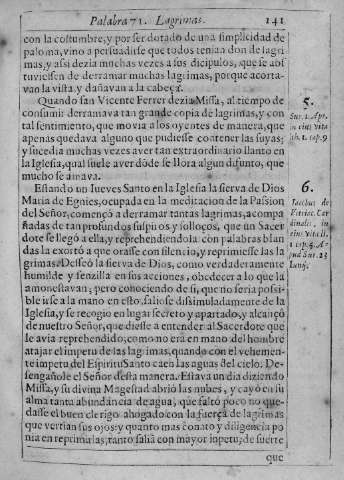 Palabra 71. Lagrimas.
141
con la costumbre, y por ser dotado de una simplicidad de
paloma, vino a persuadirse que todos tenian don de lagri
mas, y assi dezia muchas vezes a sus dicipulos, que se abs
tuviessen de derramar muchas lagrimas, porque acorta-
van la vista, y dañavan a la cabeça.
Quando san Vicente Ferrer dezia Missa, al tiempo de
consumir derramava tan grande copia de lagrimas, y con
tal sentimiento, que movia a los oyentes de manera, que
apenas quedava alguno que pudiesse contener las suyas;
y sucedia muchas vezes aver tan extraordinario llanto en
la Iglesia, qual suele aver dõde se llora algun difunto, que
mucho se amava.
5.
Sur. 5. Apr.
in eius vita
lib. 1. cap. 9
Estando un Iueves Santo en la Iglesia la sierva de Dios
Maria de Egnies, ocupada en la meditacion de la Passion
del Señor, començò a derramar tantas lagrimas, acompa
ñadas de tan profundos suspiros y solloços, que un Sacer
dote se llegò a ella, y reprehendiendola con palabras blan
das la exortò a que orasse con silencio, y reprimiesse las la
grimas. Desseò la sierva de Dios, como verdaderamente
humilde y senzilla en sus acciones, obedecer a lo que la
amonestavan; pero conociendo de si, que no seria possi-
ble irse a la mano en esto, saliose dissimuladamente de la
Iglesia, y se recogio en lugar secreto y apartado, y alcançò
de nuestro Señor, que diesse a entender al Sacerdote que
le avia reprehendido, como no erà en mano del hombre
atajar el impetu de las lagrimas, quando con el vehemen-
te impetu del Espiritu Santo caen las aguas del cielo. De-
sengañole el Señor desta manera. Estava un dia diziendo
Missa, y su divina Magestad abriò las nubes, y cayò en su
alma tanta abundancia de agua, que faltò poco no que-
dasse el buen clerigo ahogado con la fuerça de lagrimas
que vertian sus ojos: y quanto mas conato y diligencia po
nia en reprimirlas, tanto salia con mayor inpetu; de suerte
6.
Iacobus de
Vitriac. Car
dinalis, in
eius vita li.
1. cap. 5. A-
pud Sur. 23
Iunij.
que